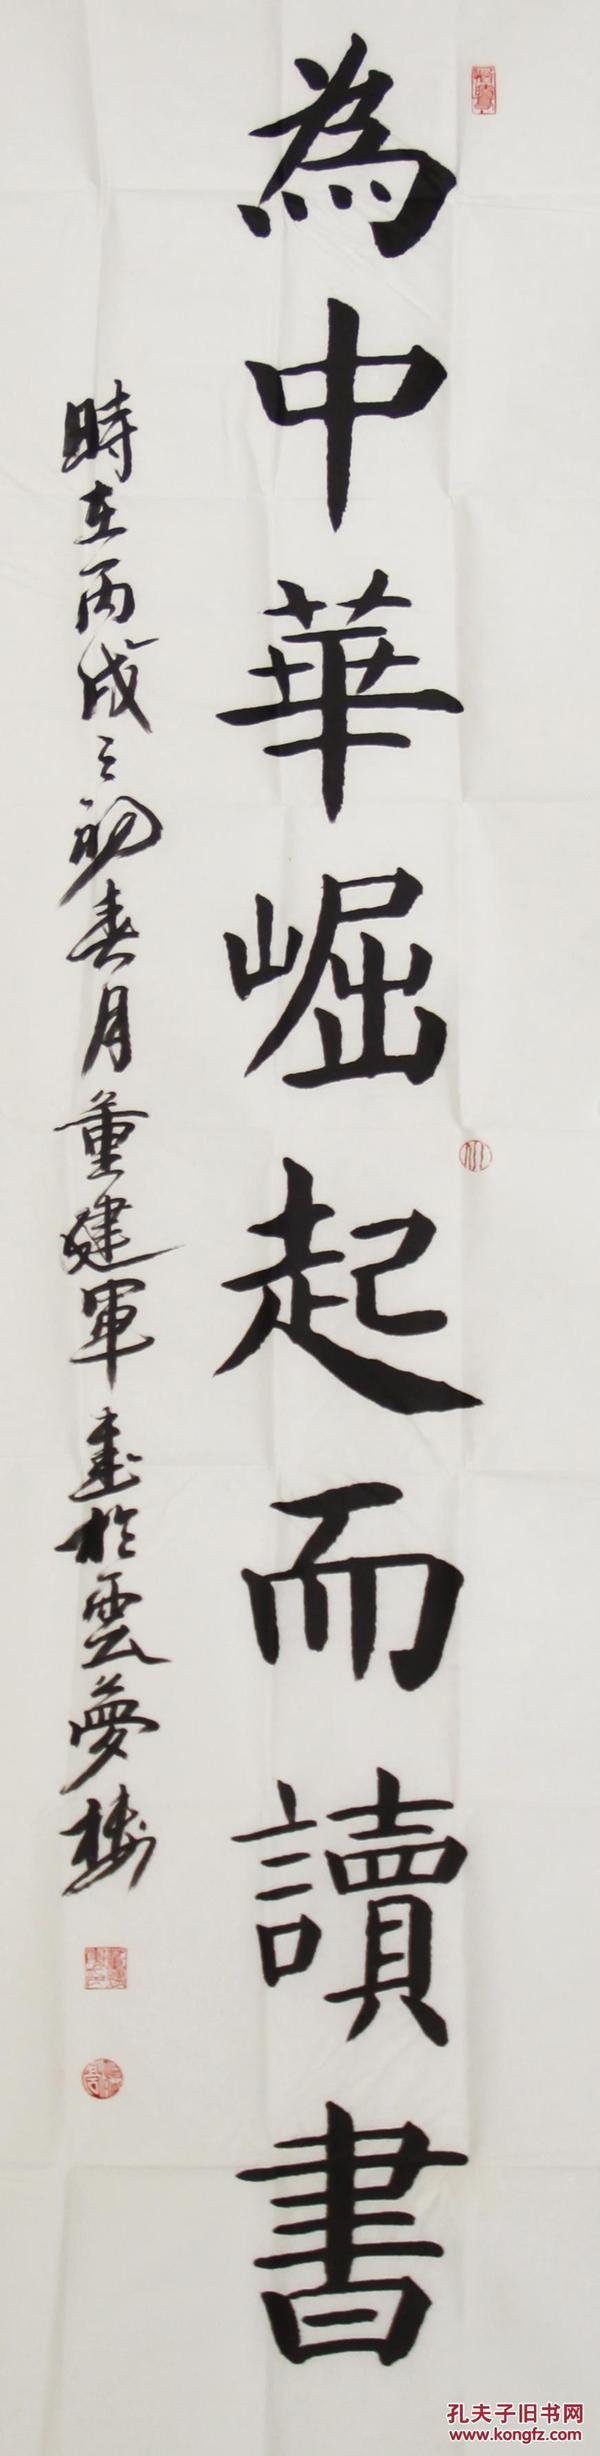 為中華崛起而讀書
時在丙戌之初春月董建軍書於雲夢樓
孔夫子旧书网
www.kongfz.com